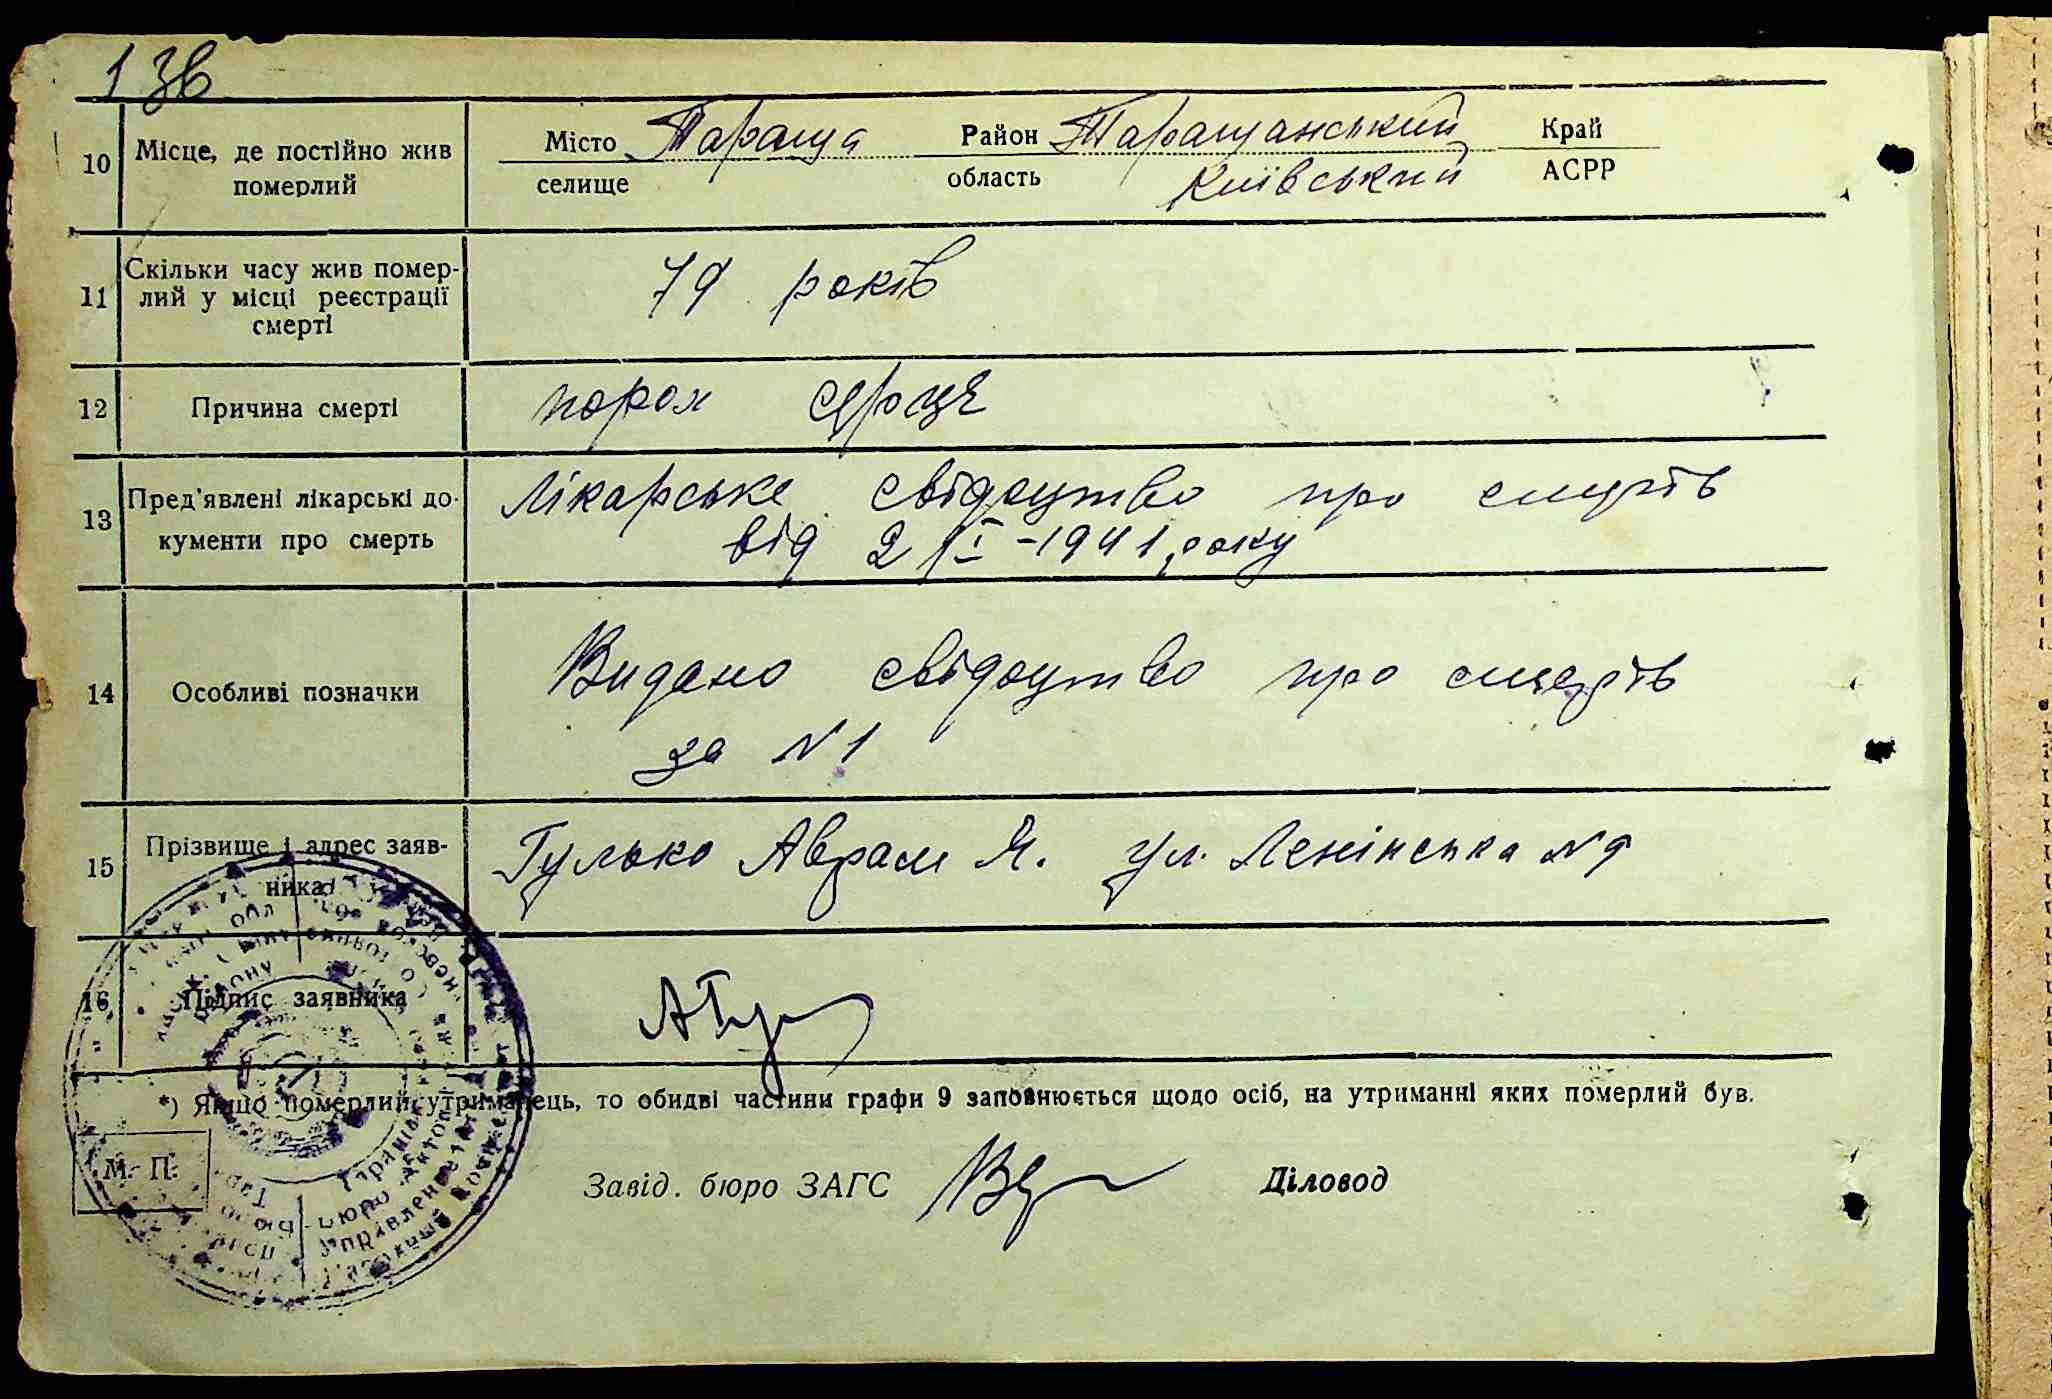 1 зв
10 Місце, де постійно жив померлий
Місто Тараща Район Таращанський Край
селище область Київський АСРР
11 Скільки часу жив помер-
лий у місці реєстрації
смерті
79 років
12 Причина смерті порок серця
13 Пред'явлені лікарські до-
кументи про смерть
Лікарське свідоцтво про смерть
від 2/I-1941 року
14 Особливі позначки
Видано свідоцтво про смерть
за N1
15 Прізвище і адрес заяв-
ника
Гулько Аврам Я. ул. Ленінська N9
16 Підпис заявника
*) Якщо померлий утриманець, то обидві частини графи 9 заповнюється щодо осіб, на утриманні яких померлий був.
М. П.
Завід. бюро ЗАГС Діловод